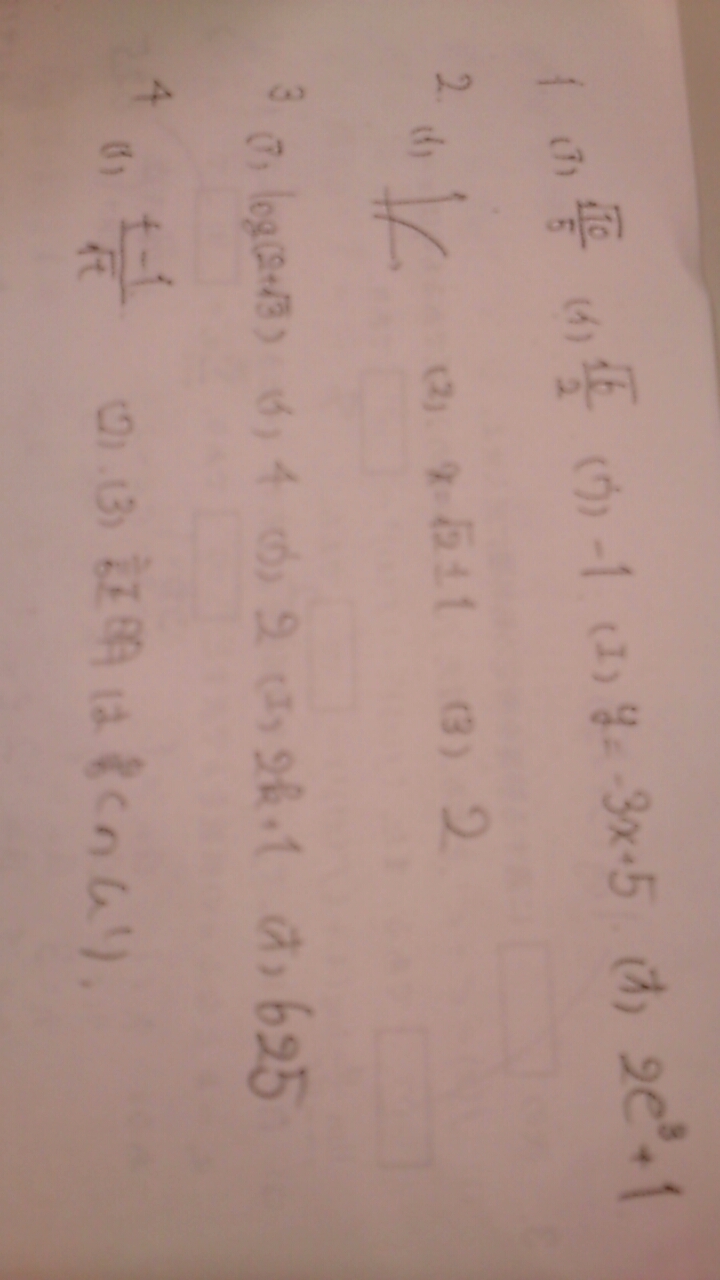 1 (ア) √10/5 (イ) √6/2 (ウ) -1 (エ) y=-3x+5 (オ) 2e³+1
2. (1) (2) x=√2±1 (3) 2
3 (ア) log(2+√3) (イ) 4 (ウ) 2 (エ) 2k+1 (オ) 625
4 (1) (2), (3) 証明は省く